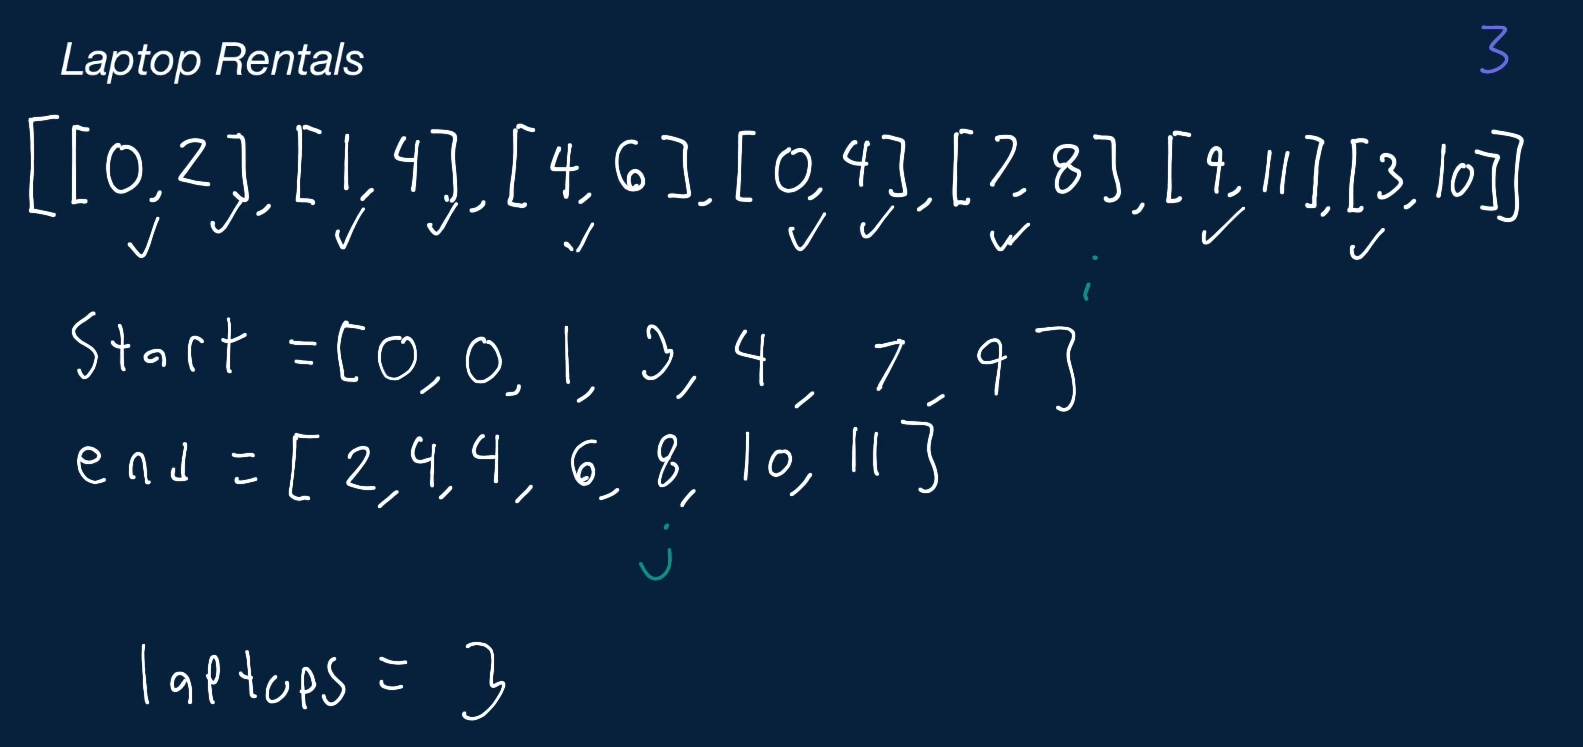 Laptop Rentals
3
[[0,2], [1,4], [4,6], [0,4], [7,8], [9,11], [3,10]]
Start = [0, 0, 1, 3, 4, 7, 9]
i
end = [2, 4, 4, 6, 8, 10, 11]
j
laptops = 3